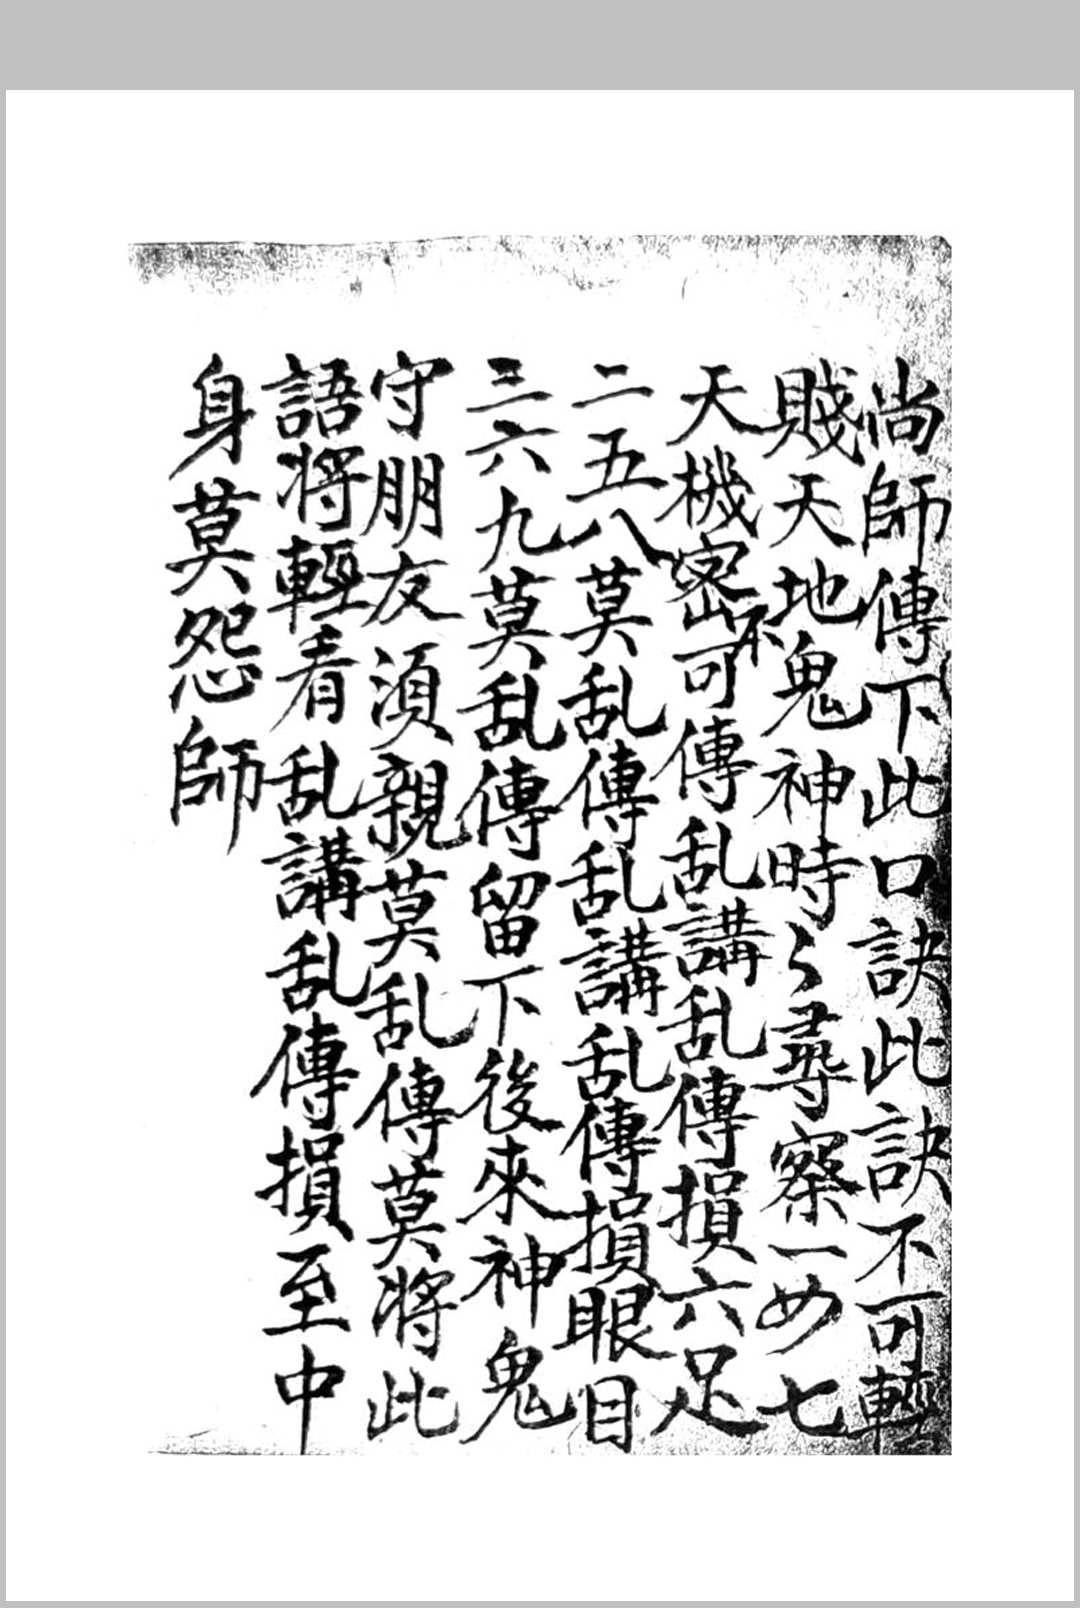 尚師傳下此口訣此訣不可輕
賤天地鬼神時々尋察一四七
天機密不可傳乱講乱傳損六足
二五八莫乱傳乱講乱傳損眼目
三六九莫乱傳留下後來神鬼
守朋友須親莫乱傳莫將此
語將輕看乱講乱傳損至中
身莫怨師